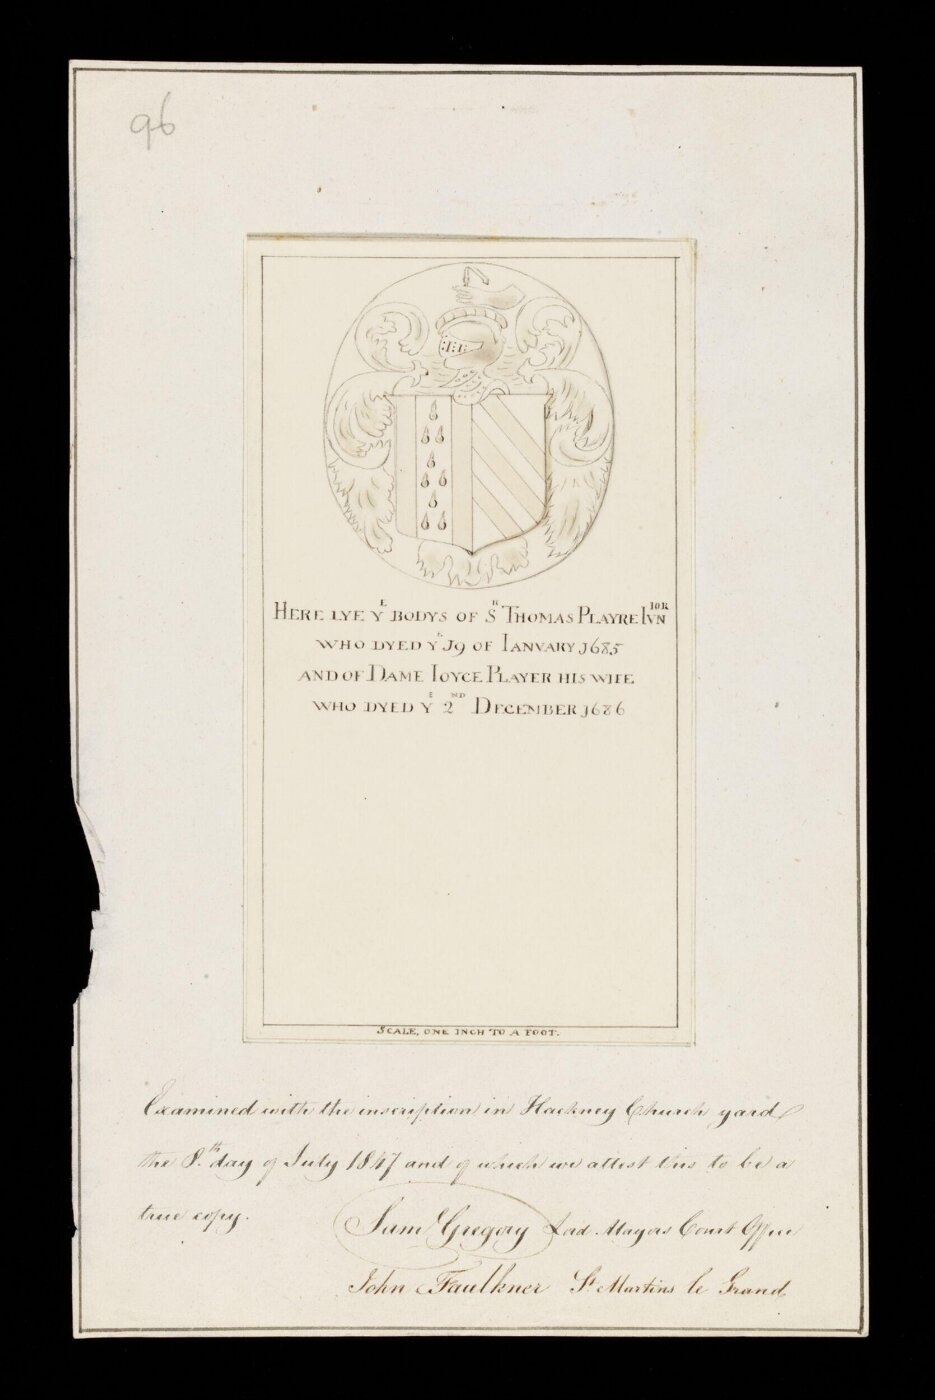 96
HERE LYE Y^E BODYS OF S^R THOMAS PLAYRE IVN^IOR
WHO DYED Y^E 19 OF IANVARY 1685
AND OF DAME IOYCE PLAYER HIS WIFE
WHO DYED Y^E 2^ND DECEMBER 1686
SCALE, ONE INCH TO A FOOT.
Examined with the inscription in Hackney Church yard
the 8.th day of July 1847 and of which we attest this to be a
true copy. Sam Gregory Lord Mayors Court Office
John Faulkner St Martins le Grand